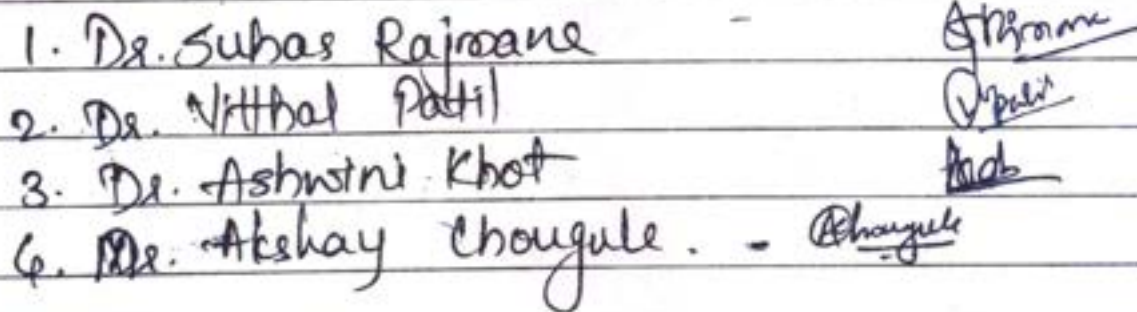 1. Dr. Subas Rajmane -
2. Dr. Vitthal Patil
3. Dr. Ashwini Khot
4. Mr. Akshay Chougule. - AChougule